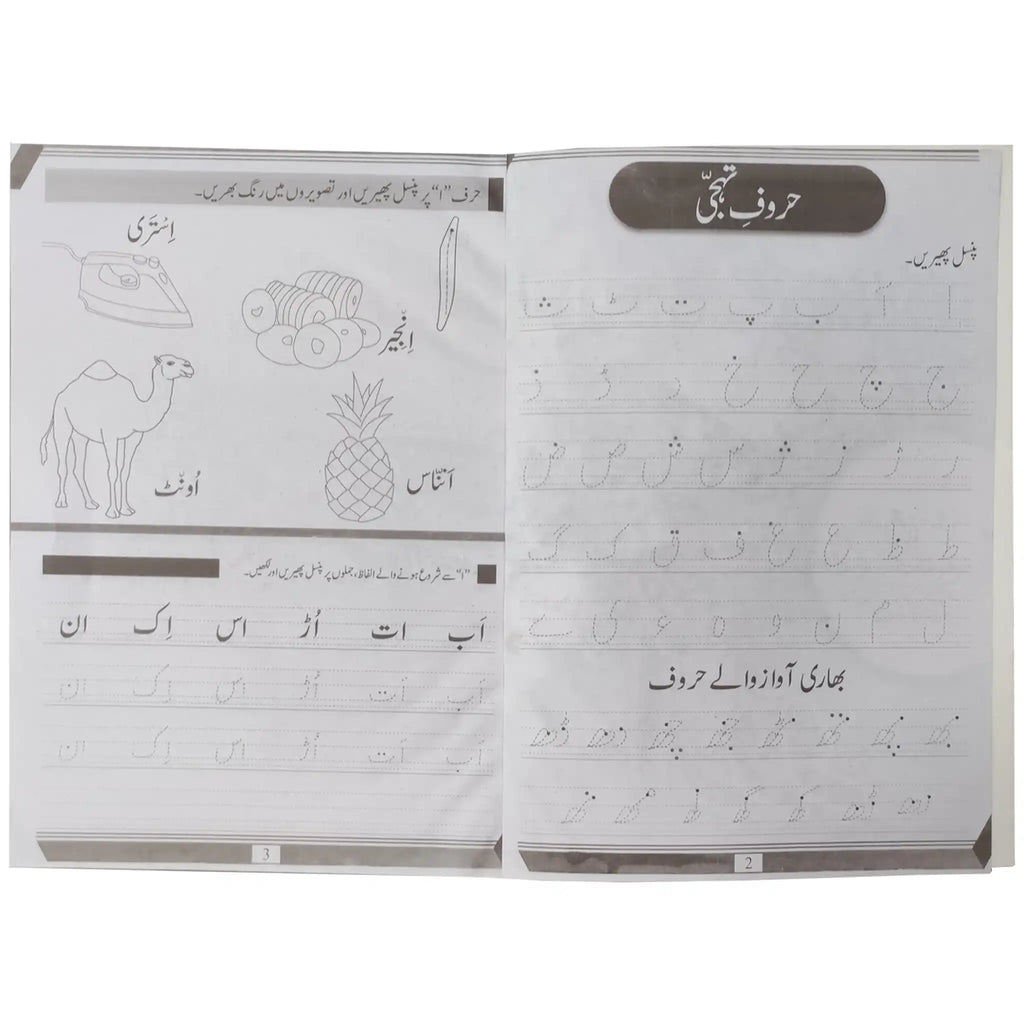 حروفِ تہجّی
پنسل پھیریں۔
ا آ ب پ ت ٹ ث
ج چ ح خ د ڈ ذ
ر ڑ ز ژ س ش ص ض
ط ظ ع غ ف ق ک گ
ل م ن و ہ ء ی ے
بھاری آواز والے حروف
بھ پھ تھ ٹھ جھ چھ دھ ڈھ
رھ ڑھ کھ گھ لھ مھ نھ
2
حرف "ا" پر پنسل پھیریں اور تصویروں میں رنگ بھریں۔
ا
اِستَری
اِنجیر
اُونٹ
اَنّاس
"ا" سے شروع ہونے والے الفاظ، جملوں پر پنسل پھیریں اور لکھیں۔
اَب ات اُڑ اس اِک ان
اَب اَت اُڑ اس اِک ان
اَب اَت اُڑ اس اِک ان
3